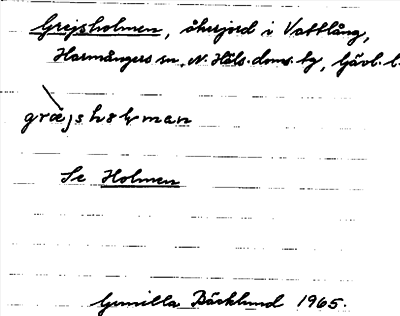 Grejsholmen, åkerjord i Vattlång,
Harmångers sn, N. Häls. doms. tg, Gävl. l.
græjshɵlman
Se Holmen
Gunilla Bäcklund 1965.